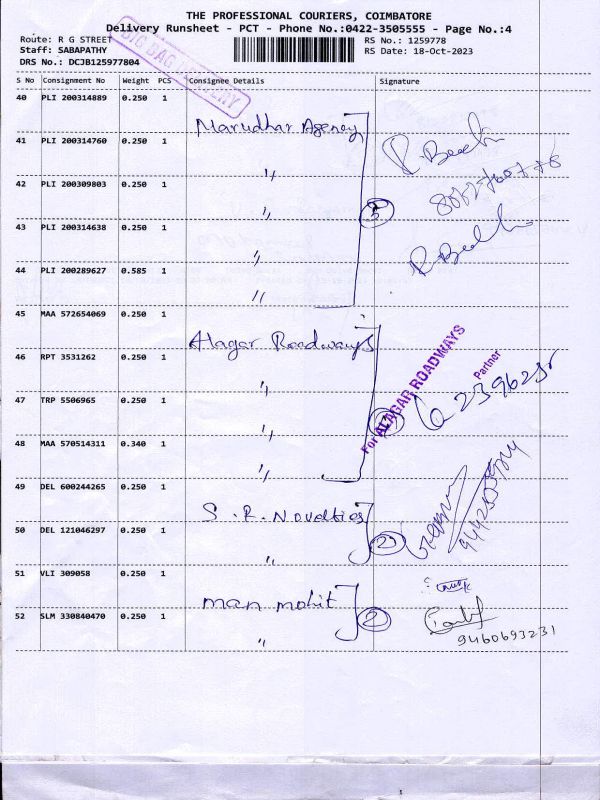 THE PROFESSIONAL COURIERS, COIMBATORE
Delivery Runsheet - PCT - Phone No.:0422-3505555 - Page No.:4
Route: R G STREET
RS No.: 1259778
Staff: SABAPATHY
RS Date: 18-Oct-2023
DRS No.: DCJB125977804
BIG BAG DELIVERY
S No Consignment No Weight PCS Consignee Details Signature
40 PLI 200314889 0.250 1 Marudhar Agency
41 PLI 200314760 0.250 1 "
42 PLI 200309803 0.250 1 "
43 PLI 200314638 0.250 1 "
44 PLI 200289627 0.585 1 "
5
45 MAA 572654069 0.250 1 Alagar Roadways
46 RPT 3531262 0.250 1 "
47 TRP 5506965 0.250 1 "
48 MAA 570514311 0.340 1 "
For ALAGAR ROADWAYS
Partner
49 DEL 600244265 0.250 1 S.R. Novelties
50 DEL 121046297 0.250 1 "
2
51 VLI 309058 0.250 1 man mohit
52 SLM 330840470 0.250 1 "
2
9460693231